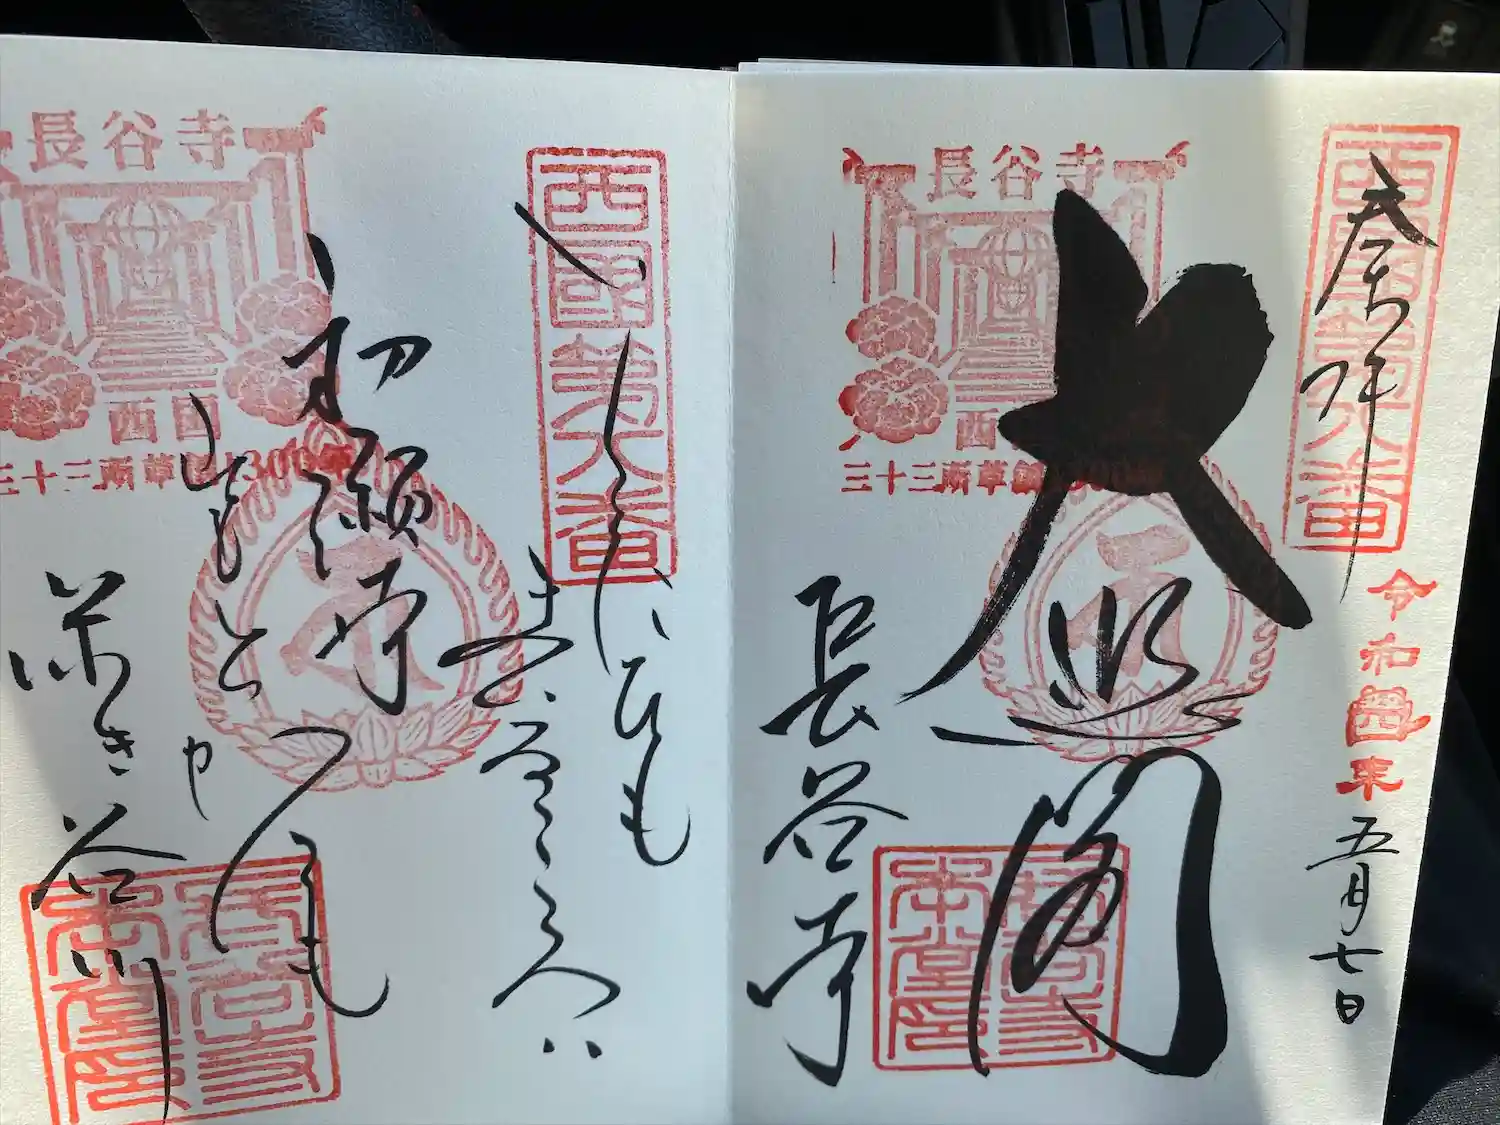 西國第八番
奉拝
令和四年
五月七日
長谷寺
西国
三十三所草創1300年
大悲閣
長谷寺
長谷寺
本堂印
西國第八番
いくたびも
まゐるこころハ
長谷寺
西国
三十三所草創1300年
初瀬寺
山もちかひも
深き谷川
長谷寺
本堂印